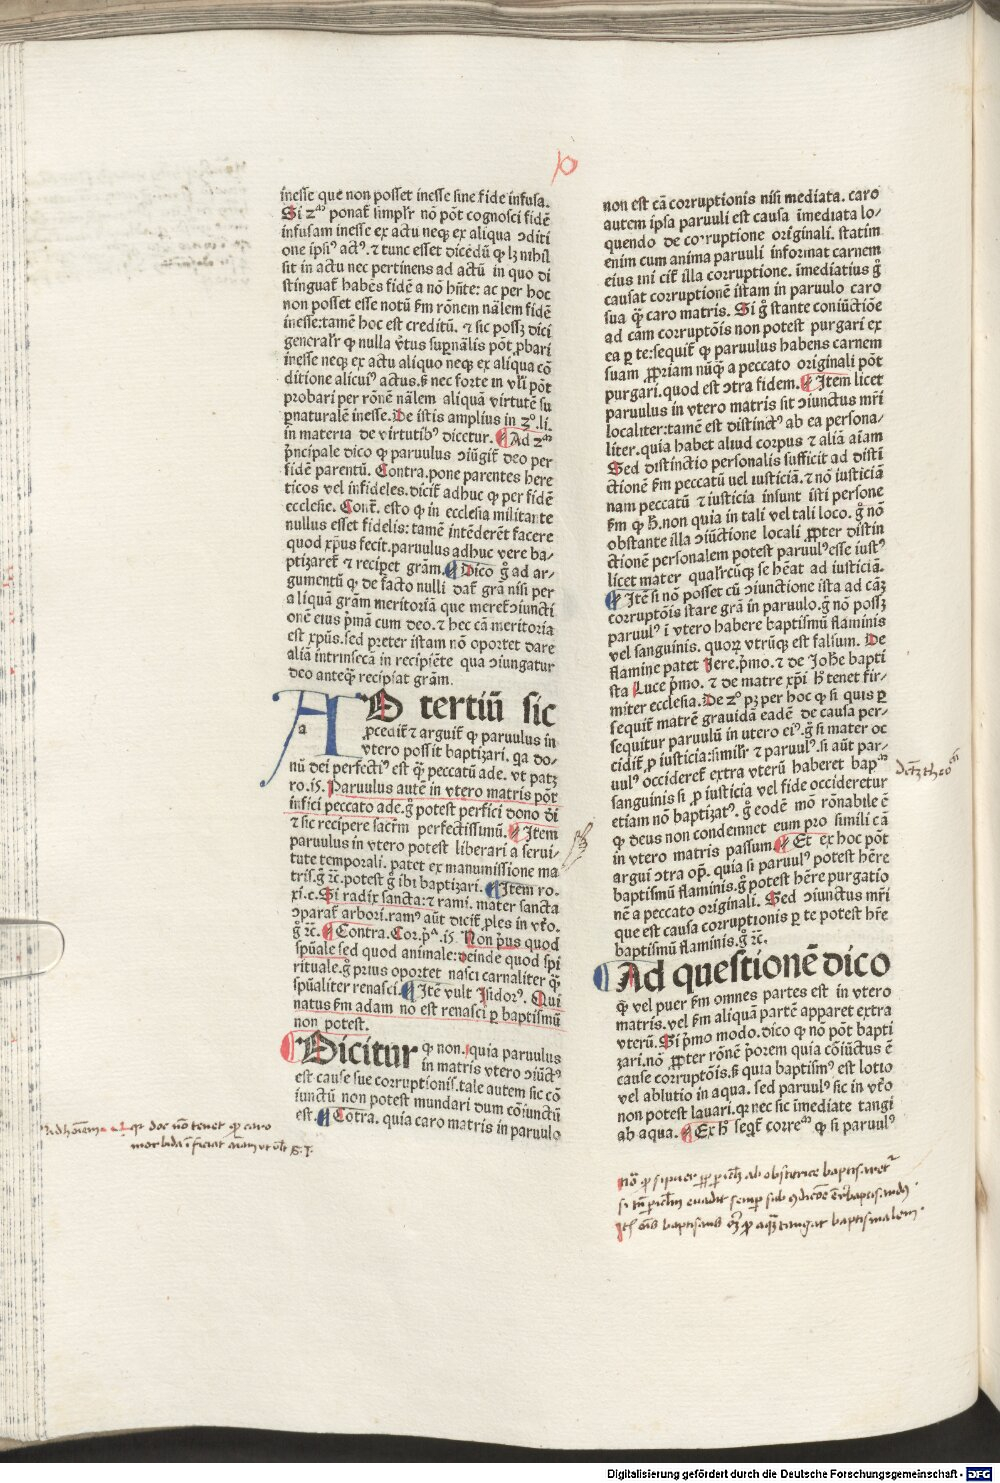 inesse que non posset inesse sine fide infusa.
Si 2ᵐ ponat᷑ simpl᷑r nō pōt cognosci fidē
infusam inesse ex actu neqꝫ ex aliqua ↄditi
one ipsiꝰ actꝰ. ⁊ tunc esset dicēdū ꝙ lꝫ nihil
sit in actu nec pertinens ad actū in quo di
stinguat᷑ habēs fidē a nō hn̄te: ac per hoc
non posset esse notū ẜm rōnem nālem fidē
inesse: tamē hoc est creditū. ⁊ sic possꝫ dici
general᷑r ꝙ nulla v̄tus sup̲nālis pōt ꝓbari
inesse neqꝫ ex actu aliquo neqꝫ ex aliqua cō
ditione alicuiꝰ actus. ẜ nec forte in vl᷑i pōt
probari per rōnē nālem aliquā virtutē su
ꝑnaturalē inesse. De istis amplius in 2°. li.
in materia de virtutibꝰ dicetur. Ad 2ᵐ
p̄ncipale dico ꝙ paruulus ↄiūgit᷑ deo per
fidē parentū. Contra. pone parentes here
ticos vel infideles. dicit᷑ adhuc ꝙ per fidē
ecclesie. Cont᷑. esto ꝙ in ecclesia militante
nullus esset fidelis: tamē intēderēt facere
quod xp̄us fecit. paruulus adhuc vere ba-
ptizaret᷑ ⁊ recip̲et gr̄am. Dico g̊ ad ar-
gumentū ꝙ de facto nulli dat᷑ gr̄a nisi per
aliquā gr̄am meritoriā que meret᷑ ↄiuncti
onē eius p̄mā cum deo. ⁊ hec cā meritoria
est xp̄us. sed p̲reter istam nō oportet dare
aliā intrinsecā in recipiēte qua ↄiungatur
deo anteqꝫ recipiat gr̄am.
AD tertiū sic
a
ꝓcedit᷑ ⁊ arguit᷑ ꝙ paruulus in
vtero possit baptizari. qa do-
nū dei perfectiꝰ est qꝫ peccatū ade. vt patꝫ
ro. i5. Paruulus autē in vtero matris pōt
infici peccato ade. g̊ potest perfici dono di
⁊ sic recipere sacr̄m perfectissimū. Item
paruulus in vtero potest liberari a serui-
tute temporali. patet ex manumissione ma
tris. g̊ ⁊c̄. potest g̊ ibi baptizari. Item ro-
xi. c. Si radix sancta: ⁊ rami. mater sancta
ↄparat᷑ arbori. ramꝰ aūt dicit᷑ ꝓles in vt᷑o.
g̊ ⁊c̄. Contra. Cor. p̄ᵃ. i5 Non p̄us quod
spūale sed quod animale: deinde quod spi
rituale. g̊ prius oportet nasci carnaliter qꝫ
spūaliter renasci. Itē vult Isidorꝰ. Qui
natus ẜm adam no est renasci ꝑ baptismū
non potest.
Dicitur ꝙ non. quia paruulus
in matris vtero ↄiūctꝰ
est cause sue corruptionis. tale autem sic cō
iunctū non potest mundari dum cōiunctū
est. Cōtra. quia caro matris in paruulo
non est cā corruptionis nisi mediata. caro
autem ipsa paruuli est causa īmediata lo-
quendo de corruptione originali. statim
enim cum anima paruuli informat carnem
eius ini cit᷑ illa corruptione. īmediatius g̊
causat corruptionē istam in paruulo caro
sua qꝫ caro matris. Si g̊ stante coniūctiōe
ad cam corruptōis non potest purgari ex
ea ꝑ te: sequit᷑ ꝙ paruulus habens carnem
suam ꝓpriam nūqꝫ a peccato originali pōt
purgari. quod est ↄtra fidem. Item licet
paruulus in vtero matris sit ↄiunctus mr̄i
localiter: tamē est distinctꝰ ab ea persona-
liter. quia habet aliud corpus ⁊ aliā aīam
Sed distinctio personalis sufficit ad disti
ctionē ẜm peccatū uel iusticiā. ⁊ nō iusticiā
nam peccatū ⁊ iusticia insunt isti persone
ẜm ꝙ ħ. non quia in tali vel tali loco. g̊ nō
obstante illa ↄiūctione locali ꝓpter distin
ctionē personalem potest paruulꝰ esse iustꝰ
licet mater qual᷑rcūqꝫ se hēat ad iusticiā.
Itē si nō posset cū ↄiunctione ista ad cāꝫ
corruptōis stare gr̄a in paruulo. g̊ nō possꝫ
paruulꝰ ī vtero habere baptismū flaminis
vel sanguinis. quoꝝ vtrūqꝫ est falsum. De
flamine patet Jere. p̄mo. ⁊ de Joħe bapti
sta Luce p̄mo. ⁊ de matre xp̄i ħ tenet fir-
miter ecclesia. De 2° pꝫ per hoc ꝙ si quis ꝑ
sequit᷑ matrē grauidā eadē de causa per-
sequitur paruulū in utero eiꝰ. g̊ si mater oc
cidit᷑ ꝓ iusticia: simil᷑r ⁊ paruulꝰ. si aūt par-
uulꝰ occideret᷑ extra vterū haberet bapᵐ
sanguinis si ꝓ iusticia vel fide occideretur
etiam nō baptizatꝰ. g̊ eodē mō rōnabile ē
ꝙ deus non condemnet eum pro simili cā
in vtero matris passum. Et ex hoc pōt
argui ↄtra op̄. quia si paruulꝰ potest hēre
baptismū flaminis. g̊ potest hēre purgatio
nē a peccato originali. Sed ↄiunctus mr̄i
que est causa corruptionis ꝑ te potest hr̄e
baptismū flaminis. g̊ ⁊c̄.
Ad questionē dico
ꝙ vel puer ẜm omnes partes est in vtero
matris. vel ẜm aliquā partē apparet extra
vterū. Si p̄mo modo. dico ꝙ nō pōt bapti
zari. nō ꝓpter rōnē p̄orem quia cōiūctus ē
cause corruptōis. ẜ quia baptismꝰ est lotio
vel ablutio in aqua. sed paruulꝰ sic in vt᷑o
non potest lauari. qꝛ nec sic īmediate tangi
ab aqua. Ex hº seqt᷑ correᵐ ꝙ si paruulꝰ
ꝙ doc nō tenet ꝙ caro